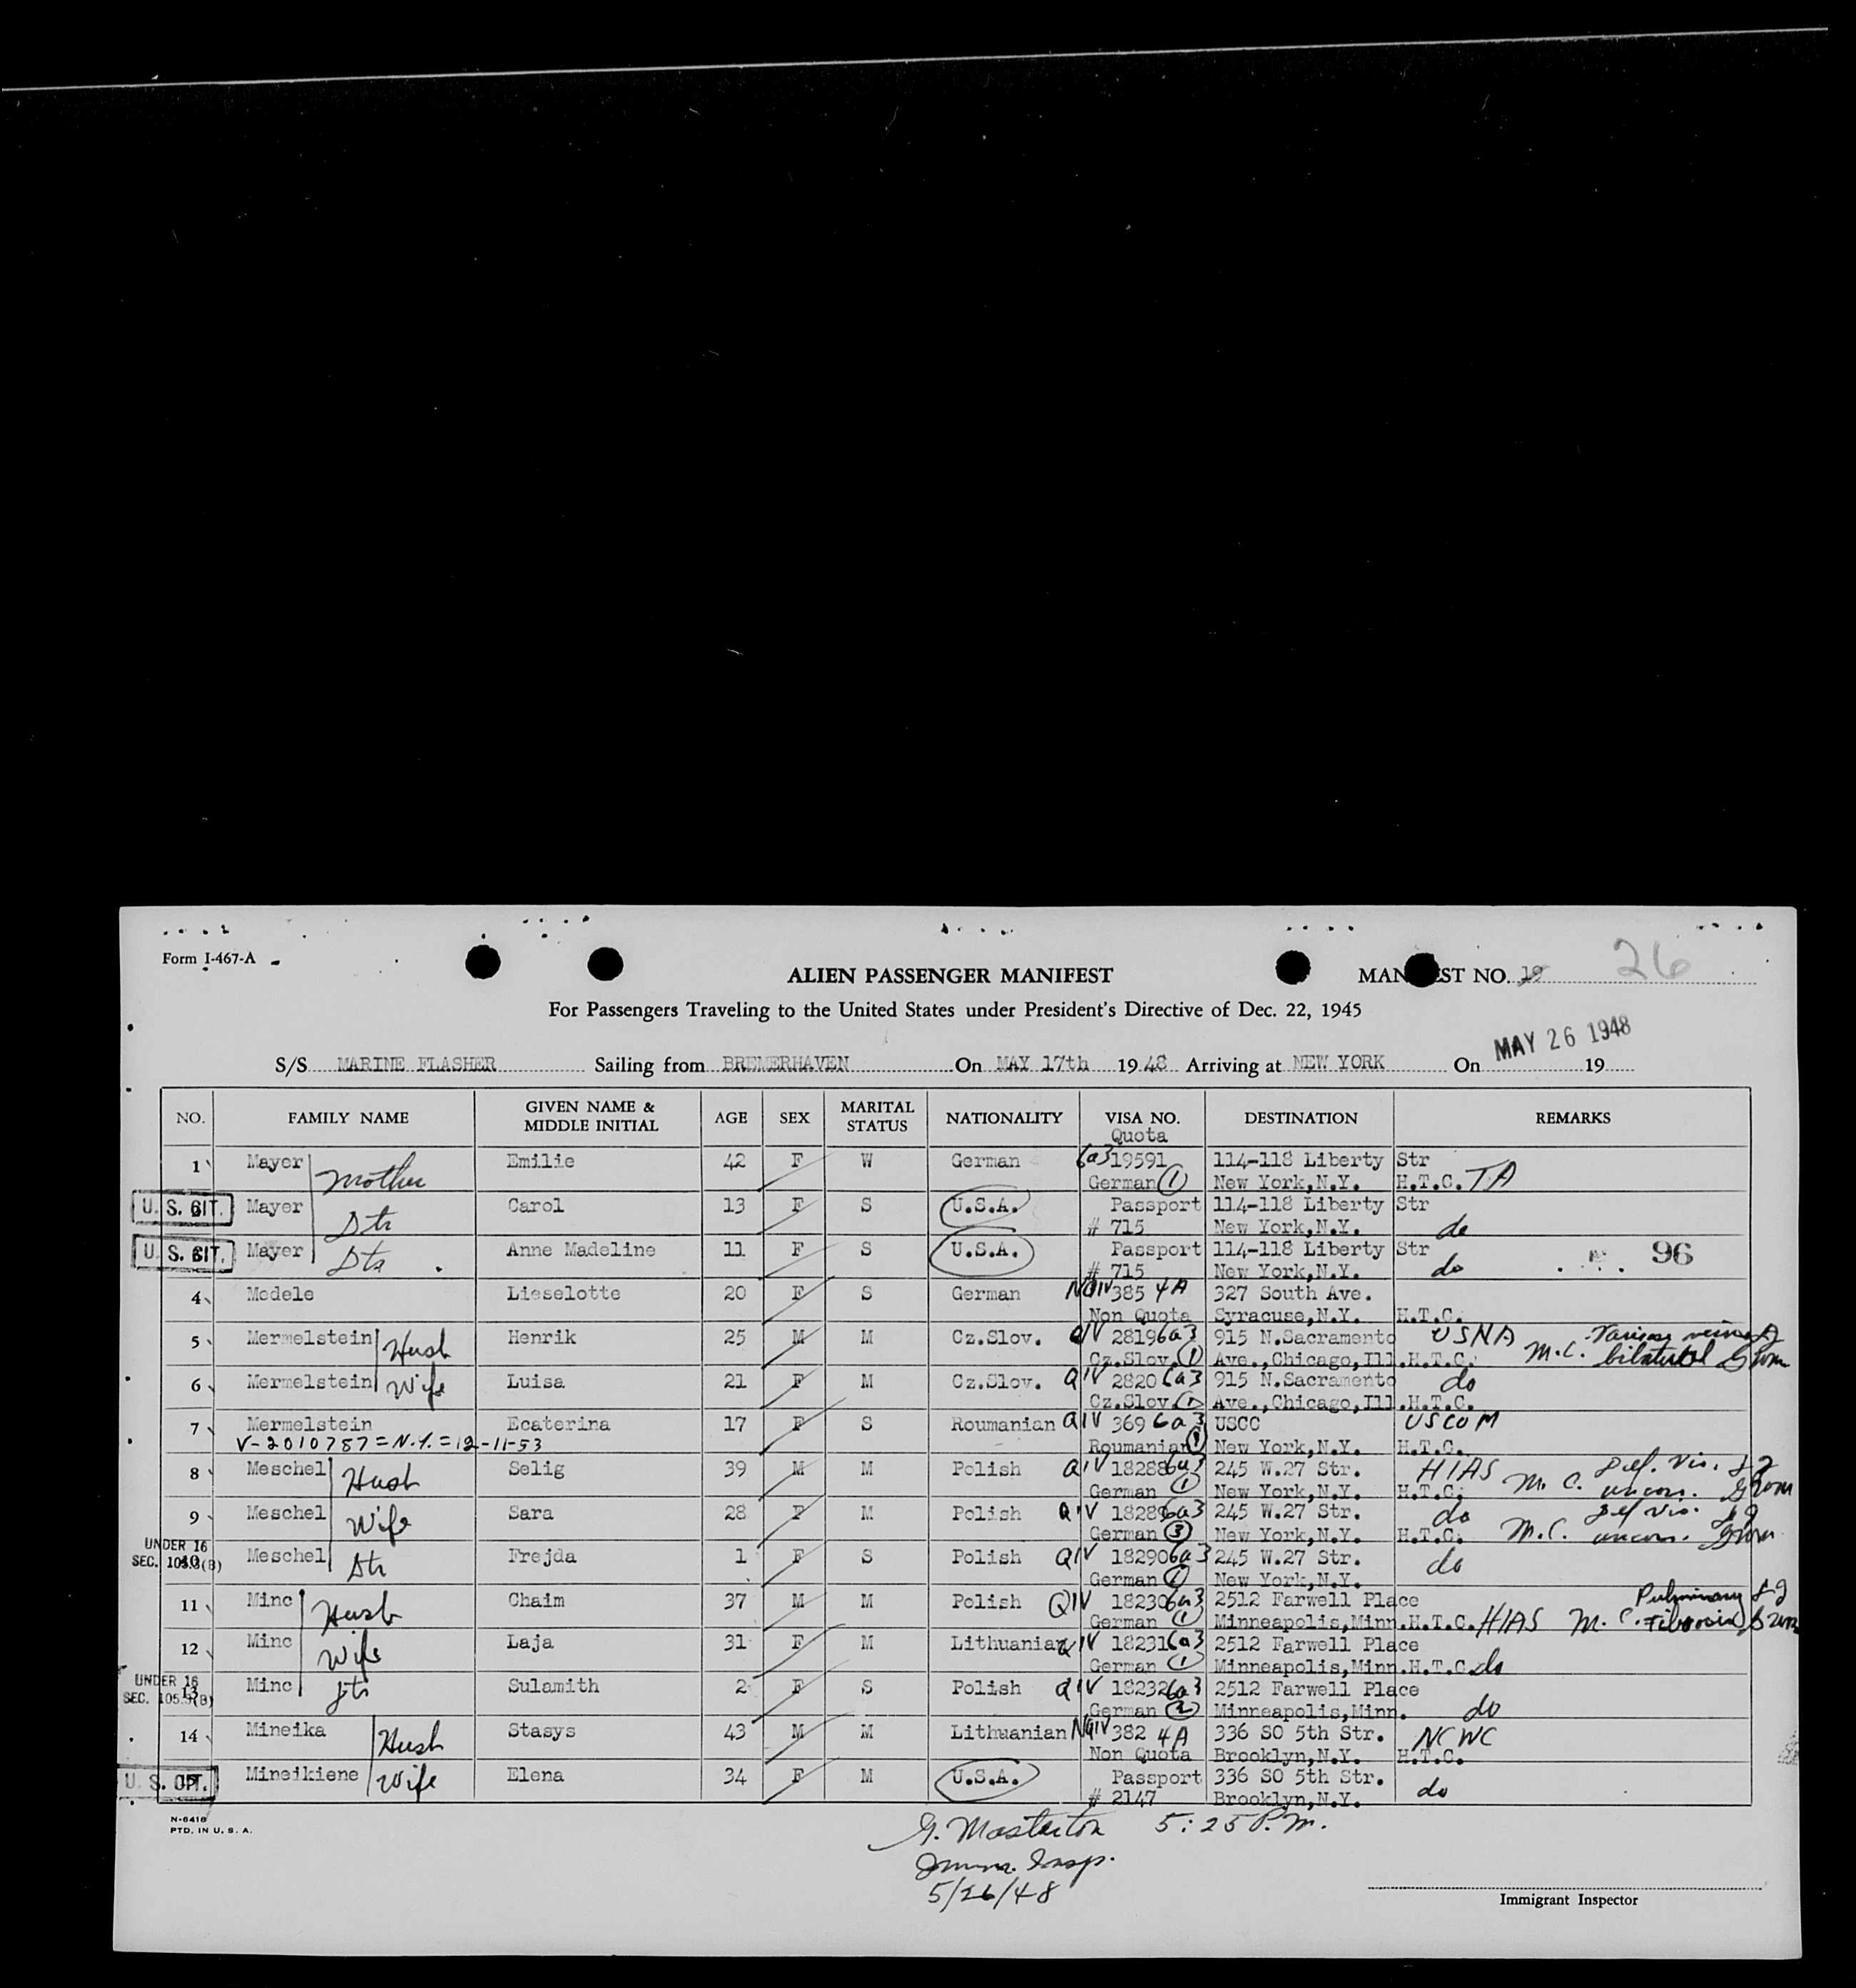 Form I-467-A
ALIEN PASSENGER MANIFEST
MAN ST NO. 19 26
For Passengers Traveling to the United States under President's Directive of Dec. 22, 1945
MAY 26 1948
S/S MARINE FLASHER Sailing from BREMERHAVEN On MAY 17th 1948 Arriving at NEW YORK On 19
NO. FAMILY NAME GIVEN NAME & MIDDLE INITIAL AGE SEX MARITAL STATUS NATIONALITY VISA NO. DESTINATION REMARKS
Quota
1 Mayer Mother Emilie 42 F W German 6a3 19591 114-118 Liberty Str
German 1 New York,N.Y. H.T.C. TA
U. S. CIT. Mayer Dtr Carol 13 F S U.S.A. Passport 114-118 Liberty Str
# 715 New York,N.Y. do
U. S. CIT. Mayer Dtr Anne Madeline 11 F S U.S.A. Passport 114-118 Liberty Str 96
# 715 New York,N.Y. do
4 Medele Lieselotte 20 F S German NQIV 385 4A 327 South Ave.
Non Quota Syracuse,N.Y. H.T.C.
5 Mermelstein Husb Henrik 25 M M Cz.Slov. QIV 2819 6a3 915 N.Sacramento USNA Varicose veins
Cz.Slov. 1 Ave.,Chicago,Ill. H.T.C. M.C. bilateral
6 Mermelstein Wife Luisa 21 F M Cz.Slov. QIV 2820 6a3 915 N.Sacramento do
Cz.Slov. 1 Ave.,Chicago,Ill. H.T.C.
7 Mermelstein Ecaterina 17 F S Roumanian QIV 369 6a3 USCC USCOM
V-2010787=N.Y.=12-11-53 Roumanian 1 New York,N.Y. H.T.C.
8 Meschel Husb Selig 39 M M Polish QIV 18288 6a3 245 W.27 Str. HIAS Def. Vis.
German 1 New York,N.Y. H.T.C. M.C. uncorr.
9 Meschel Wife Sara 28 F M Polish QIV 18289 6a3 245 W.27 Str. do Def Vis.
German 3 New York,N.Y. H.T.C. M.C. uncorr.
UNDER 16
SEC. 105.3(B) 10 Meschel Dtr Frejda 1 F S Polish QIV 18290 6a3 245 W.27 Str. do
German 1 New York,N.Y.
11 Minc Husb Chaim 37 M M Polish QIV 18230 6a3 2512 Farwell Place Pulmonary
German 1 Minneapolis,Minn. H.T.C. HIAS M.C. Fibrosis
12 Minc Wife Laja 31 F M Lithuanian QIV 18231 6a3 2512 Farwell Place
German 1 Minneapolis,Minn. H.T.C. do
UNDER 16
SEC. 105.3(B) 13 Minc Dtr Sulamith 2 F S Polish QIV 18232 6a3 2512 Farwell Place
German 2 Minneapolis,Minn. do
14 Mineika Husb Stasys 43 M M Lithuanian NQIV 382 4A 336 SO 5th Str. NCWC
Non Quota Brooklyn,N.Y. H.T.C.
U. S. CIT. Mineikiene Wife Elena 34 F M U.S.A. Passport 336 SO 5th Str.
# 2147 Brooklyn,N.Y. do
N-6418
PTD. IN U. S. A.
G. Masterton 5:25 P.M.
Imm. Insp.
5/26/48
Immigrant Inspector